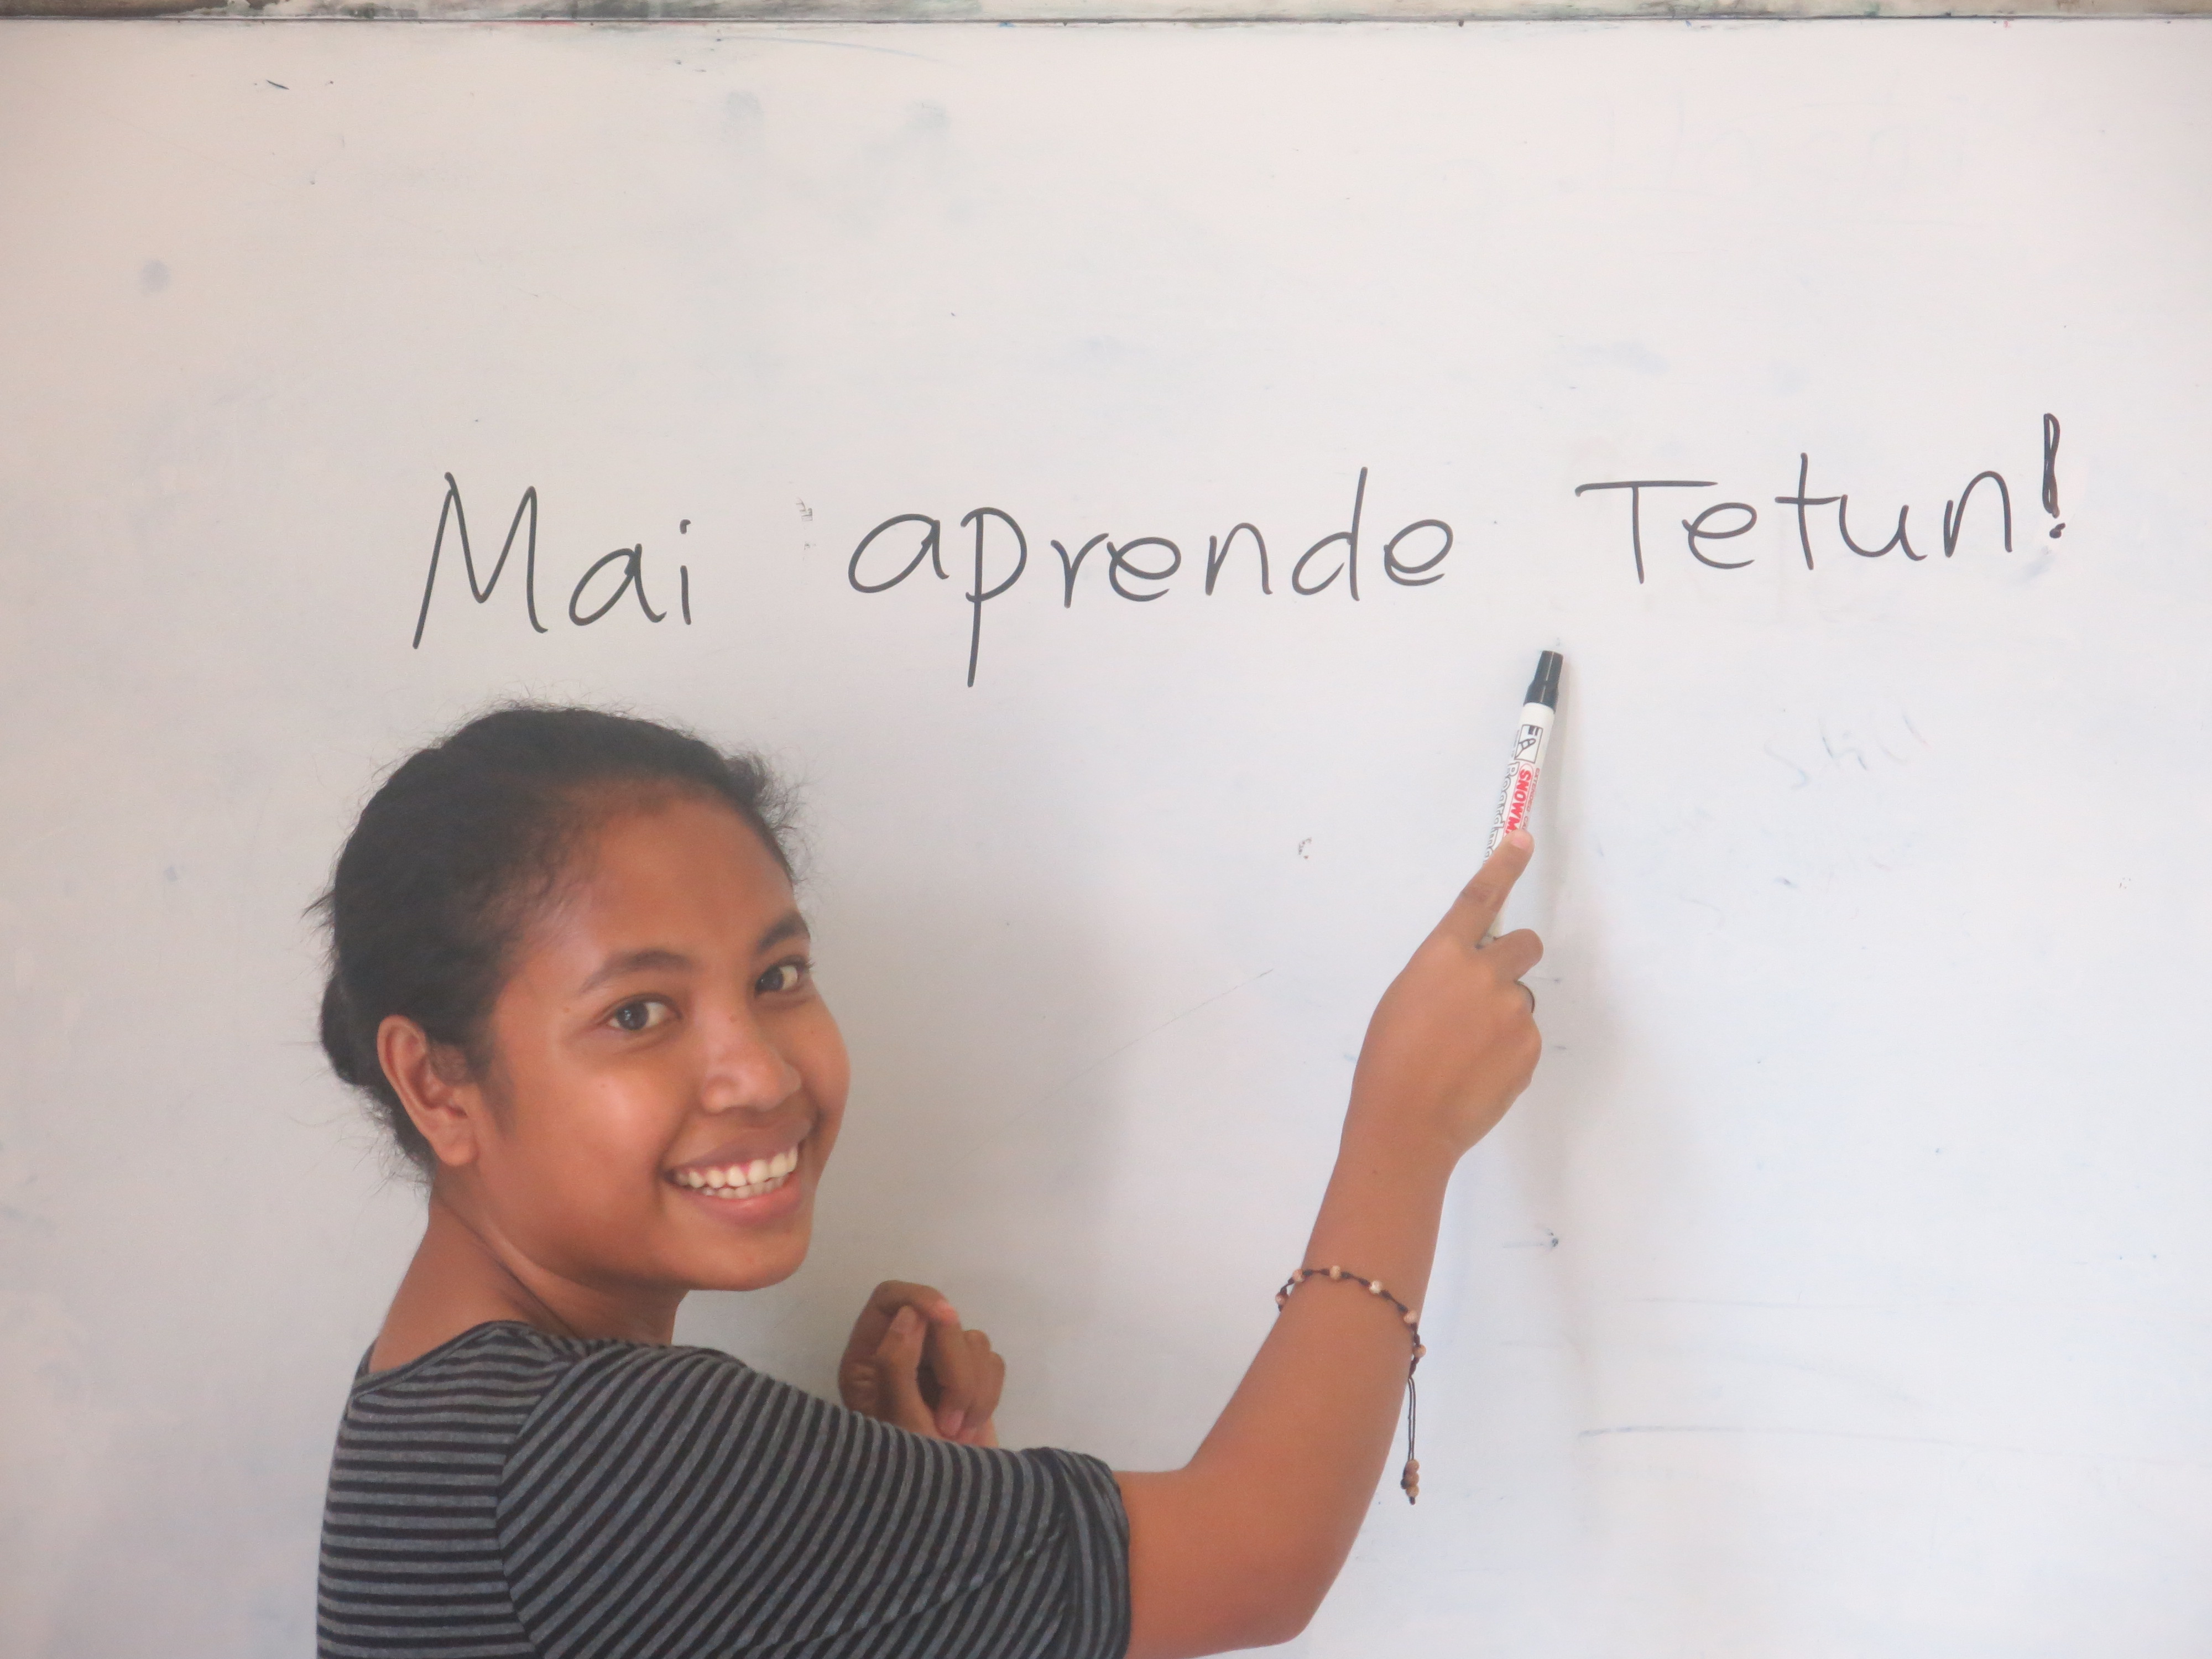 Mai aprende Tetun!
SNOWM
Board